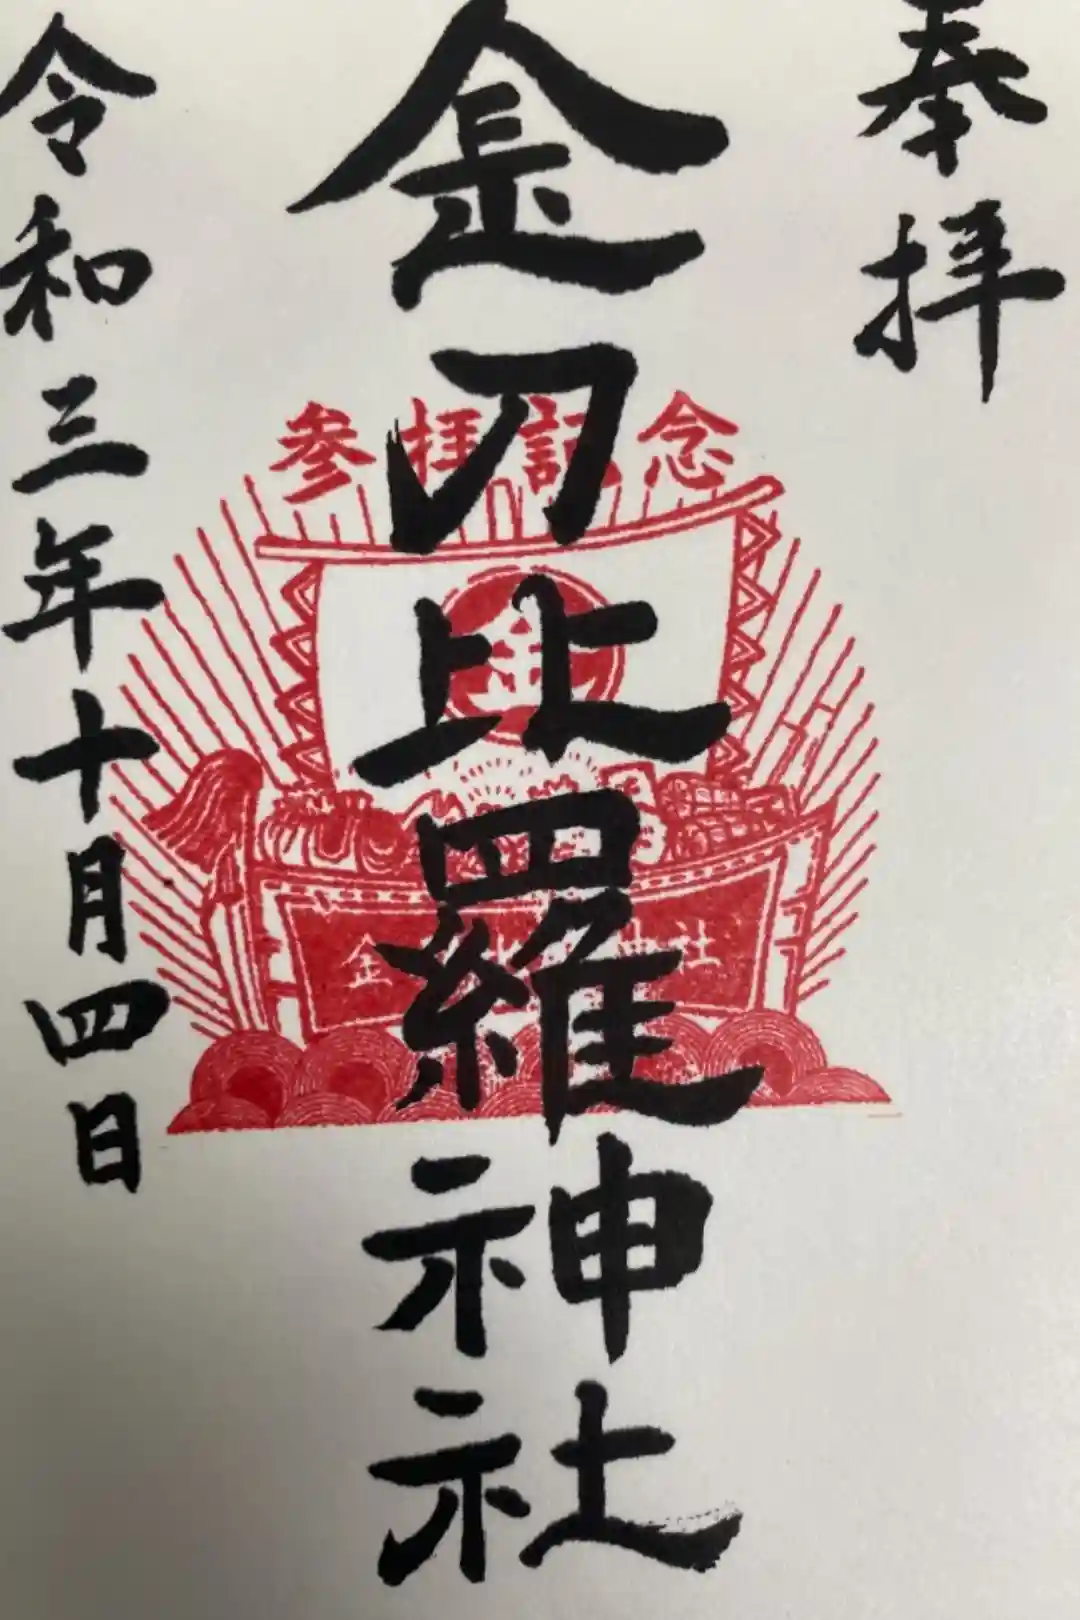 奉拝
金刀比羅神社
令和三年十月四日
参拝記念
金
金刀比羅神社